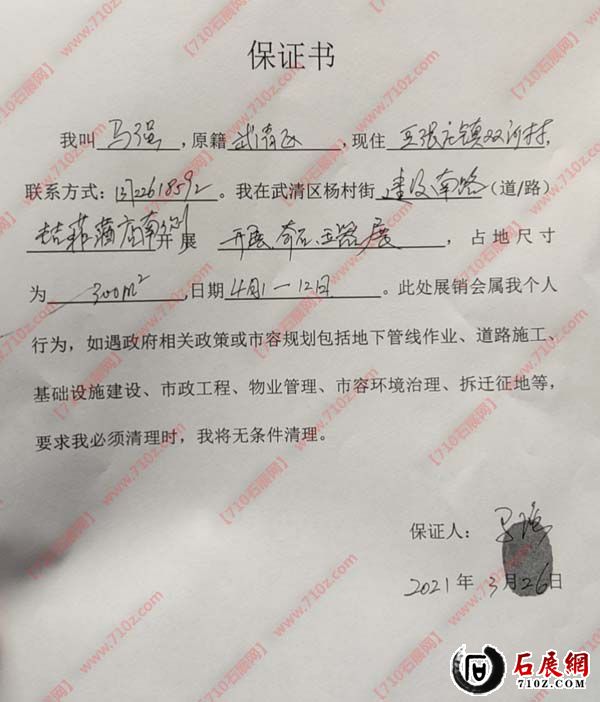 保证书
我叫 马强 ，原籍 武清区 ，现住 豆张庄镇双河村，
联系方式：13722618592 。我在武清区杨村街 建设南路（道/路）
桔菲酒店南侧开展 开展奇石玉器展 ，占地尺寸
为 300m² ，日期 4月1—12日 。此处展销会属我个人
行为，如遇政府相关政策或市容规划包括地下管线作业、道路施工、
基础设施建设、市政工程、物业管理、市容环境治理、拆迁征地等，
要求我必须清理时，我将无条件清理。
保证人：马强
2021 年 3 月 26 日
石展網
710Z.COM
【710石展网】www.710z.com